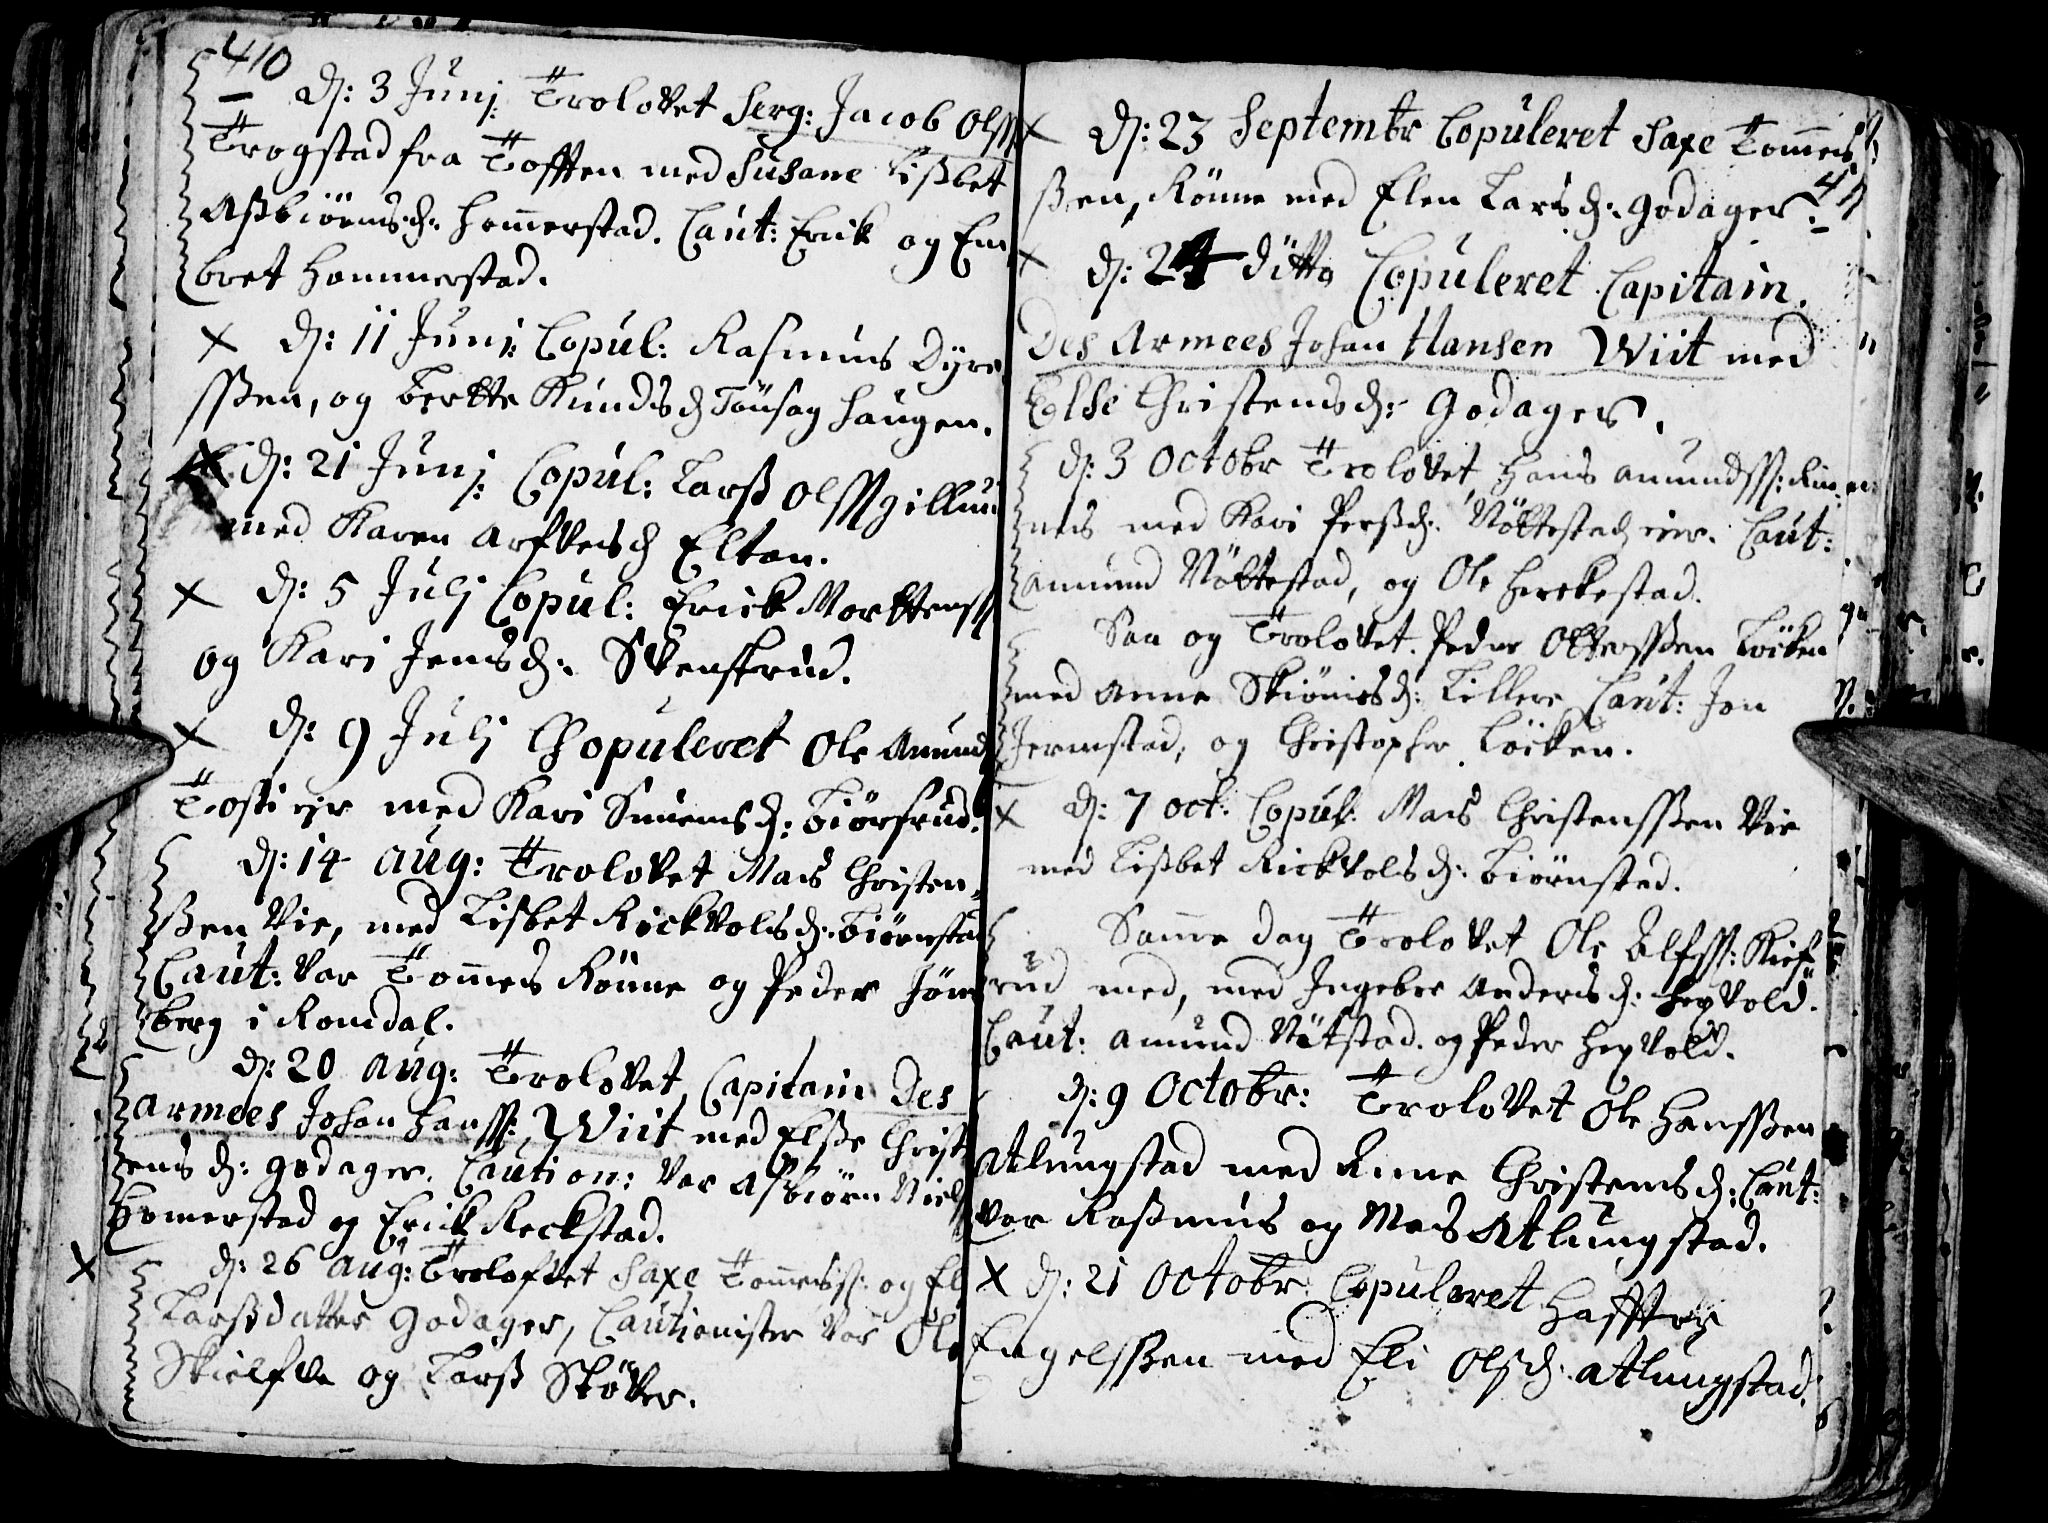 410
d: 3 Junj: Trolovet Serg: Jacob Olss
Trogstad fra Tofften med Susane Lisbet
Assbiörnsd: Hommerstad. Caut: Erick og Em
bret Hommerstad.
x d: 11 Junj: Copul: Rasmus Dyre
ssen, og Berthe Knudsd Haugen.
x d: 21 Junj: Copul: Larss Olss
med Karen Arfvesd Elton.
x d: 5 Julj Copul: Erick Mortenss
og Kari Jensd: Svenskrud.
x d: 9 Julj Chopuleret Ole Amund
Tosti med Kari Simensd: Biörkrud.
d: 14 Aug: Trolovet Mads Christen-
ssen Vie, med Lisbet Rickvolsd: Biörnstad
Caut: var Tommes Rönne og Peder
berg i Romdal.
d: 20 Aug: Trolovet Capitain Des
Armees Johan Hanss: Wiit med Elsse Christ
ensd: Godager. Caution: var Asbiörn Niels
Hommerstad og Erick Reckstad.
x d: 26 Aug: Trolofvet Saxe Tommess: og El
Larssdatter Godager, Cautionister var Ole
Skielfve og Larss Stöver.
x d: 23 Septembr Copuleret Saxe Tommes
ssen, Rönne med Elen Larsd: Godager.
x d: 24 Ditto Copuleret Capitain
Des Armees Johan Hansen Wiit med
Else Christensd: Godager.
d: 3 Octobr Trolovet Hans Amundss:
med Kari Perssd: Nöttestad Caut:
Amund Nöttestad, og Ole Herkestad.
Saa og Trolovet Peder Ottersssen Löcken
med Anne Skiönisd: Lillere Caut: Jon
Jermstad, og Christopher Löcken.
x d: 7 Oct: Copul: Mads Christenssen Vie
med Lissbet Rickvolsd: Biörnstad.
Samme dag Trolovet Ole Alfss: Kief
rud med, med Ingebor Andersd: Hexvold.
Caut: Amund Nötstad. og Peder Hexvold.
d: 9 Octobr: Trolovet Ole Hanssen
Atlungstad med Anne Christensd: Caut:
var Rasmus og Mads Atlungstad.
x d: 21 Octobr Copuleret Haffter
Engelssen med Eli Olsd: Atlungstad.